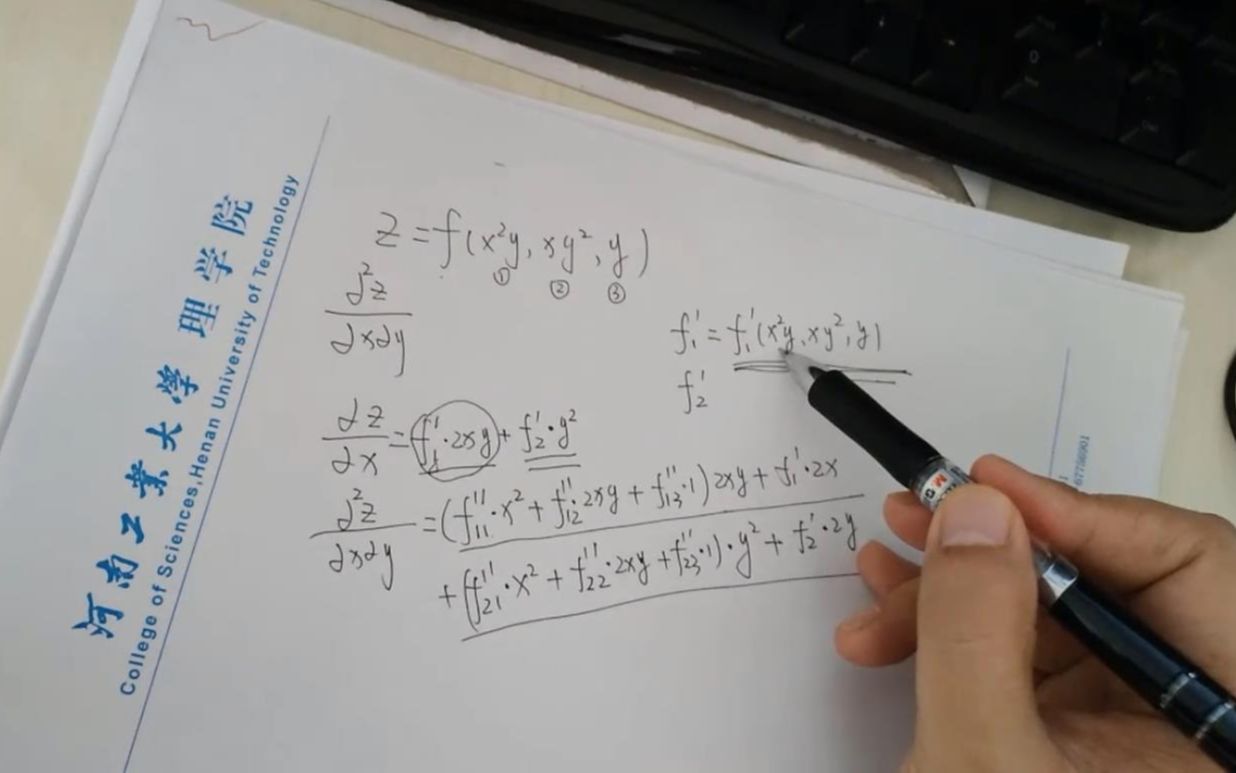 河南工业大学 理学院
College of Sciences,Henan University of Technology
z = f(x²y, xy², y)
① ② ③
∂²z/∂x∂y
f₁' = f₁'(x²y, xy², y)
f₂'
∂z/∂x = f₁'·2xy + f₂'·y²
∂²z/∂x∂y = (f₁₁''·x² + f₁₂''·2xy + f₁₃''·1)2xy + f₁'·2x
+ (f₂₁''·x² + f₂₂''·2xy + f₂₃''·1)·y² + f₂'·2y